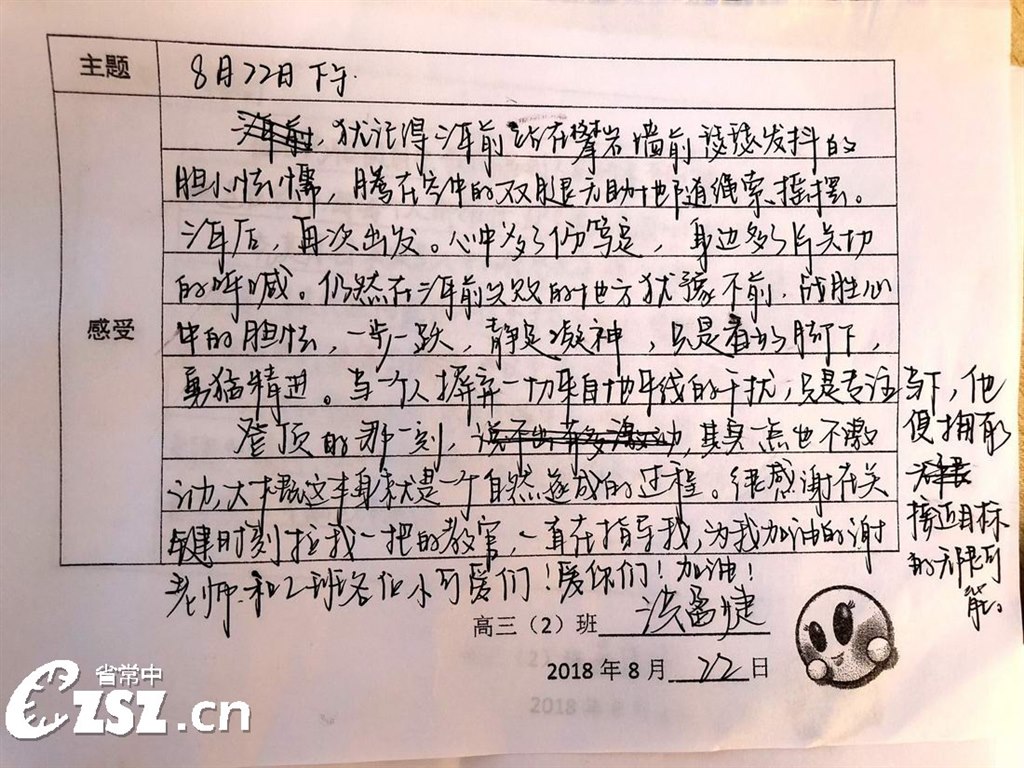 主题
8月22日下午
犹记得三年前站在攀岩墙前瑟瑟发抖的
胆小怯懦，腾在空中的双腿无助地随绳索摇摆。
三年后，再次出发。心中多了份笃定，身边多了片关切
的呼喊。仍然在三年前失败的地方犹豫不前，战胜心
感受
中的胆怯，一步一跃，静定凝神，只是看的脚下，
勇猛精进。当一个人摒弃一切来自地平线的干扰，只是专注当下，他
便拥有
接近目标
的无限可
能。
登顶的那一刻，其实一点也不激
动，大概这本身就是一个自然遂成的过程。很感谢在关
键时刻拉我一把的教官，一直在指导我，为我加油的谢
老师和2班各位小可爱们！爱你们！加油！
高三（2）班
2018年8月22日
省常中
CZSZ.cn